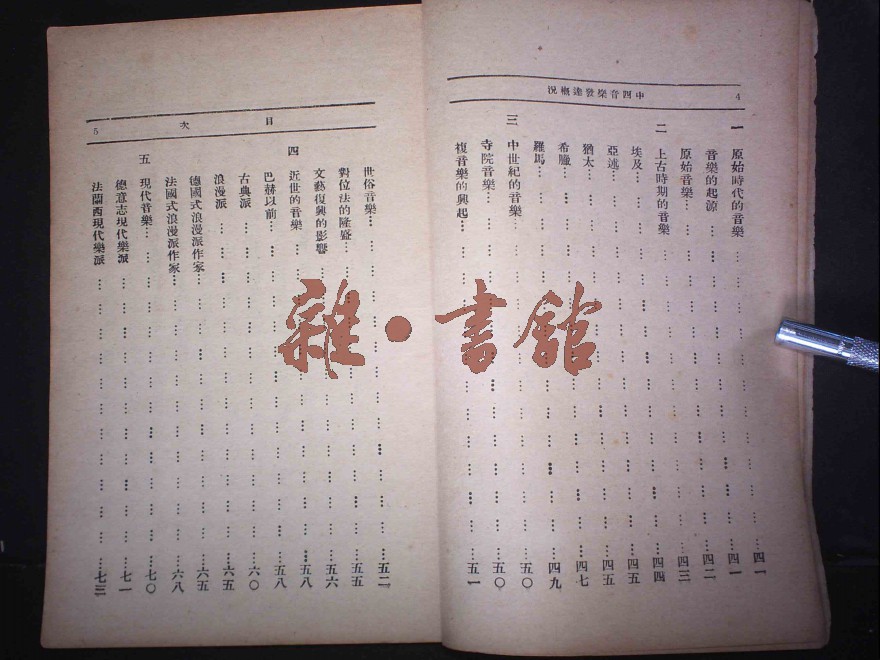 中西音樂發達概況
4
一 原始時代的音樂……四一
音樂的起源……四一
原始音樂……四二
二 上古時期的音樂……四三
埃及……四四
亞述……四五
猶太……四五
希臘……四七
羅馬……四九
三 中世紀的音樂……五〇
寺院音樂……五〇
複音樂的興起……五一
目次
5
世俗音樂……五二
對位法的隆盛……五五
文藝復興的影響……五六
四 近世的音樂……五八
巴赫以前……五八
古典派……六〇
浪漫派……六五
德國式浪漫派作家……六五
法國式浪漫派作家……六八
五 現代音樂……七〇
德意志現代樂派……七一
法蘭西現代樂派……七三
雜·書館